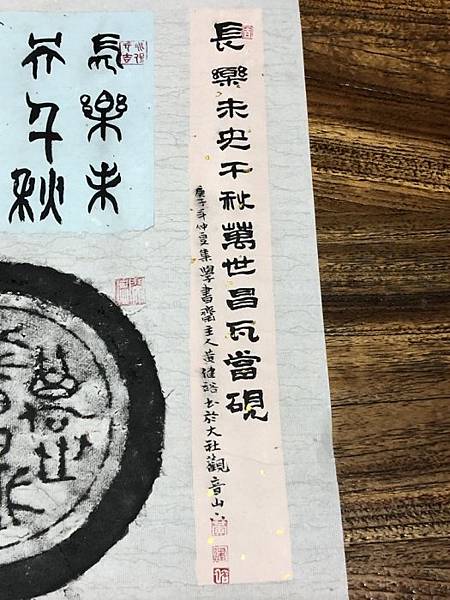 長樂未央千秋萬世昌瓦當硯
庚子年仲夏集學書齋主人黃健書於大社觀音山下
長樂未
央千秋
萬世